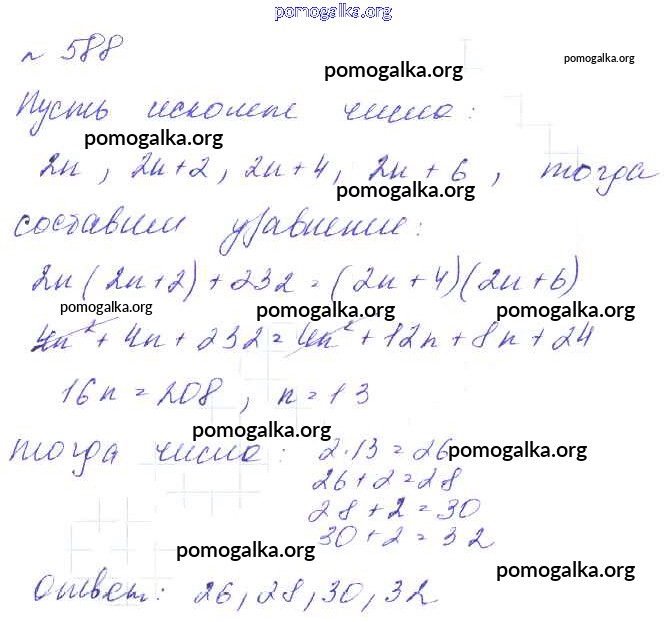 pomogalka.org
№ 588
pomogalka.org pomogalka.org
Пусть искомые числа:
pomogalka.org
2n, 2n+2, 2n+4, 2n+6, тогда
pomogalka.org
составим уравнение:
2n(2n+2)+232=(2n+4)(2n+6)
pomogalka.org pomogalka.org pomogalka.org
4n²+4n+232=4n²+12n+8n+24
16n=208, n=13
pomogalka.org
тогда числа: 2·13=26
pomogalka.org
26+2=28
28+2=30
30+2=32
pomogalka.org
pomogalka.org
Ответ: 26, 28, 30, 32